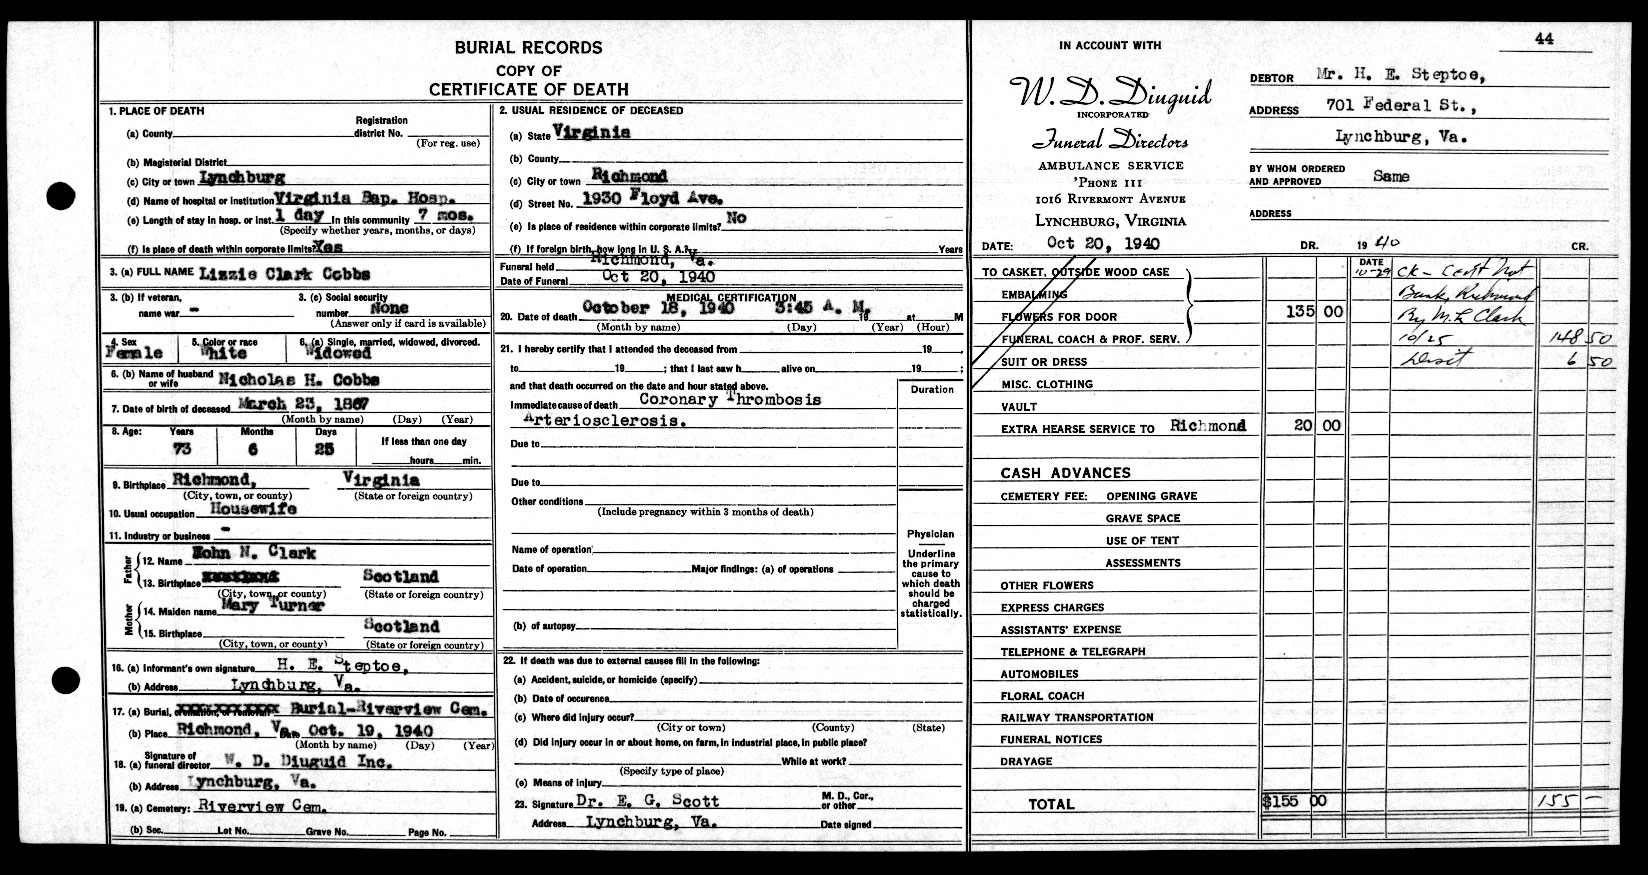 BURIAL RECORDS
COPY OF
CERTIFICATE OF DEATH
1. PLACE OF DEATH
(a) County
Registration
district No.
(For reg. use)
(b) Magisterial District
(c) City or town Lynchburg
(d) Name of hospital or institution Virginia Bap. Hosp.
(e) Length of stay in hosp. or inst. 1 day In this community 7 mos.
(Specify whether years, months, or days)
(f) Is place of death within corporate limits? Yes
3. (a) FULL NAME Lizzie Clark Cobbs
3. (b) If veteran, name war -
3. (c) Social security number None
(Answer only if card is available)
4. Sex Female
5. Color or race White
6. (a) Single, married, widowed, divorced. Widowed
6. (b) Name of husband or wife Nicholas H. Cobbs
7. Date of birth of deceased March 23, 1867
(Month by name) (Day) (Year)
8. Age: Years Months Days If less than one day
73 6 25 hours min.
9. Birthplace Richmond, Virginia
(City, town, or county) (State or foreign country)
10. Usual occupation Housewife
11. Industry or business -
Father
12. Name John N. Clark
13. Birthplace Scotland
(City, town, or county) (State or foreign country)
Mother
14. Maiden name Mary Turner
15. Birthplace Scotland
(City, town, or county) (State or foreign country)
16. (a) Informant's own signature H. E. Steptoe,
(b) Address Lynchburg, Va.
17. (a) Burial, cremation, or removal? Burial-Riverview Cem.
(b) Place Richmond, Va. Oct. 19, 1940
(Month by name) (Day) (Year)
18. (a) Signature of funeral director W. D. Diuguid Inc.
(b) Address Lynchburg, Va.
19. (a) Cemetery: Riverview Cem.
(b) Sec. Lot No. Grave No. Page No.
2. USUAL RESIDENCE OF DECEASED
(a) State Virginia
(b) County
(c) City or town Richmond
(d) Street No. 1930 Floyd Ave.
(e) Is place of residence within corporate limits? No
(f) If foreign birth, how long in U. S. A.? Years
Funeral held Richmond, Va.
Date of Funeral Oct 20, 1940
MEDICAL CERTIFICATION
20. Date of death October 18, 1940 3:45 A. M. 19 at M
(Month by name) (Day) (Year) (Hour)
21. I hereby certify that I attended the deceased from 19 ,
to 19 ; that I last saw h alive on 19 ;
and that death occurred on the date and hour stated above.
Duration
Immediate cause of death Coronary Thrombosis
Arteriosclerosis.
Due to
Due to
Other conditions
(Include pregnancy within 3 months of death)
Name of operation
Date of operation Major findings: (a) of operations
(b) of autopsy
Physician
Underline
the primary
cause to
which death
should be
charged
statistically.
22. If death was due to external causes fill in the following:
(a) Accident, suicide, or homicide (specify)
(b) Date of occurence
(c) Where did injury occur?
(City or town) (County) (State)
(d) Did injury occur in or about home, on farm, in industrial place, in public place?
While at work?
(Specify type of place)
(e) Means of injury
23. Signature Dr. E. G. Scott M. D., Cor., or other
Address Lynchburg, Va. Date signed
44
IN ACCOUNT WITH
W. D. Diuguid
INCORPORATED
Funeral Directors
AMBULANCE SERVICE
'PHONE 111
1016 RIVERMONT AVENUE
LYNCHBURG, VIRGINIA
DEBTOR Mr. H. E. Steptoe,
ADDRESS 701 Federal St.,
Lynchburg, Va.
BY WHOM ORDERED AND APPROVED Same
ADDRESS
DATE: Oct 20, 1940 DR. 1940 CR.
TO CASKET, OUTSIDE WOOD CASE
EMBALMING
FLOWERS FOR DOOR 135 00
FUNERAL COACH & PROF. SERV.
SUIT OR DRESS
MISC. CLOTHING
VAULT
EXTRA HEARSE SERVICE TO Richmond 20 00
DATE
10-29 CK - Cent Nat
Bank, Richmond
By M. L Clark
10/25 148 50
Disct 6 50
CASH ADVANCES
CEMETERY FEE: OPENING GRAVE
GRAVE SPACE
USE OF TENT
ASSESSMENTS
OTHER FLOWERS
EXPRESS CHARGES
ASSISTANTS' EXPENSE
TELEPHONE & TELEGRAPH
AUTOMOBILES
FLORAL COACH
RAILWAY TRANSPORTATION
FUNERAL NOTICES
DRAYAGE
TOTAL $155 00 155 -